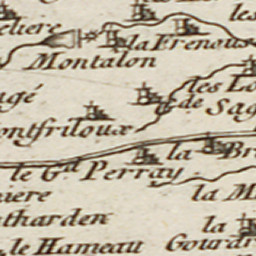 les
eliere
la Frenous
Montalon
les Lo
gé
de Sag
ontfriloux
la Br
le Gd. Perray
niere
la M
tharden
la
le Hameau
Gourdr